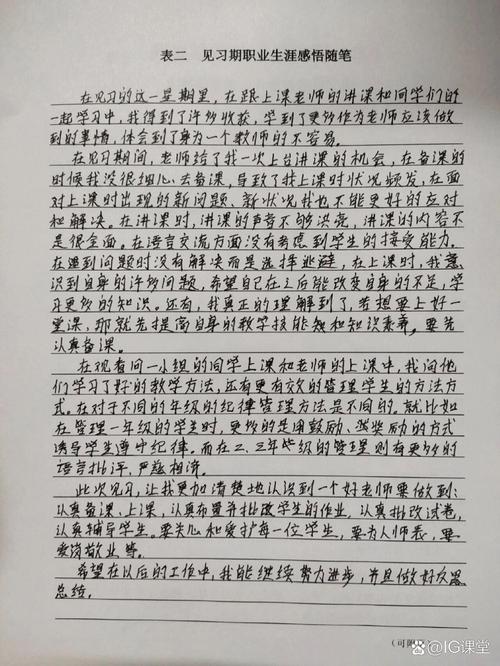 表二 见习期职业生涯感悟随笔
在见习的这一星期里，在跟上课老师的讲课和同学们的
一起学习中，我得到了许多收获，学到了更多作为老师应该做
到的事情，体会到了身为一个教师的不容易。
在见习期间，老师给了我一次上台讲课的机会，在备课的
时候我没很细心去备课，导致了我上课时状况频发，在面
对上课时出现的新问题、新状况我也不能更好的应对
和解决。在讲课时，讲课的声音不够洪亮，讲课的内容不
是很全面。在语言交流方面没有考虑到学生的接受能力。
在遇到问题时没有解决而是选择逃避，在上课时，我意
识到自身的许多问题，希望自己在之后能改变自身的不足，学
习更多的知识。还有，我真正的理解到了，若想要上好一
堂课，那就先提高自身的教学技能和知识素养，要先
认真备课。
在观看同一小组的同学上课和老师的上课中，我向他
们学习了好的教学方法，还有更有效的管理学生的方法方
式。在对于不同的年级的纪律管理方法是不同的。就比如
在管理一年级的学生时，更多的是用鼓励、奖励的方式
诱导学生遵守纪律。而在二、三年级的管理则有更多的
语言批评，严慈相济。
此次见习，让我更加清楚地认识到一个好老师要做到：
认真备课、上课，认真布置并批改学生的作业，认真批改试卷，
认真辅导学生。要关心和爱护每一位学生，要为人师表，要
爱岗敬业等。
希望在以后的工作中，我能继续努力进步，并且做好反思
总结。
（可附
@IG课堂